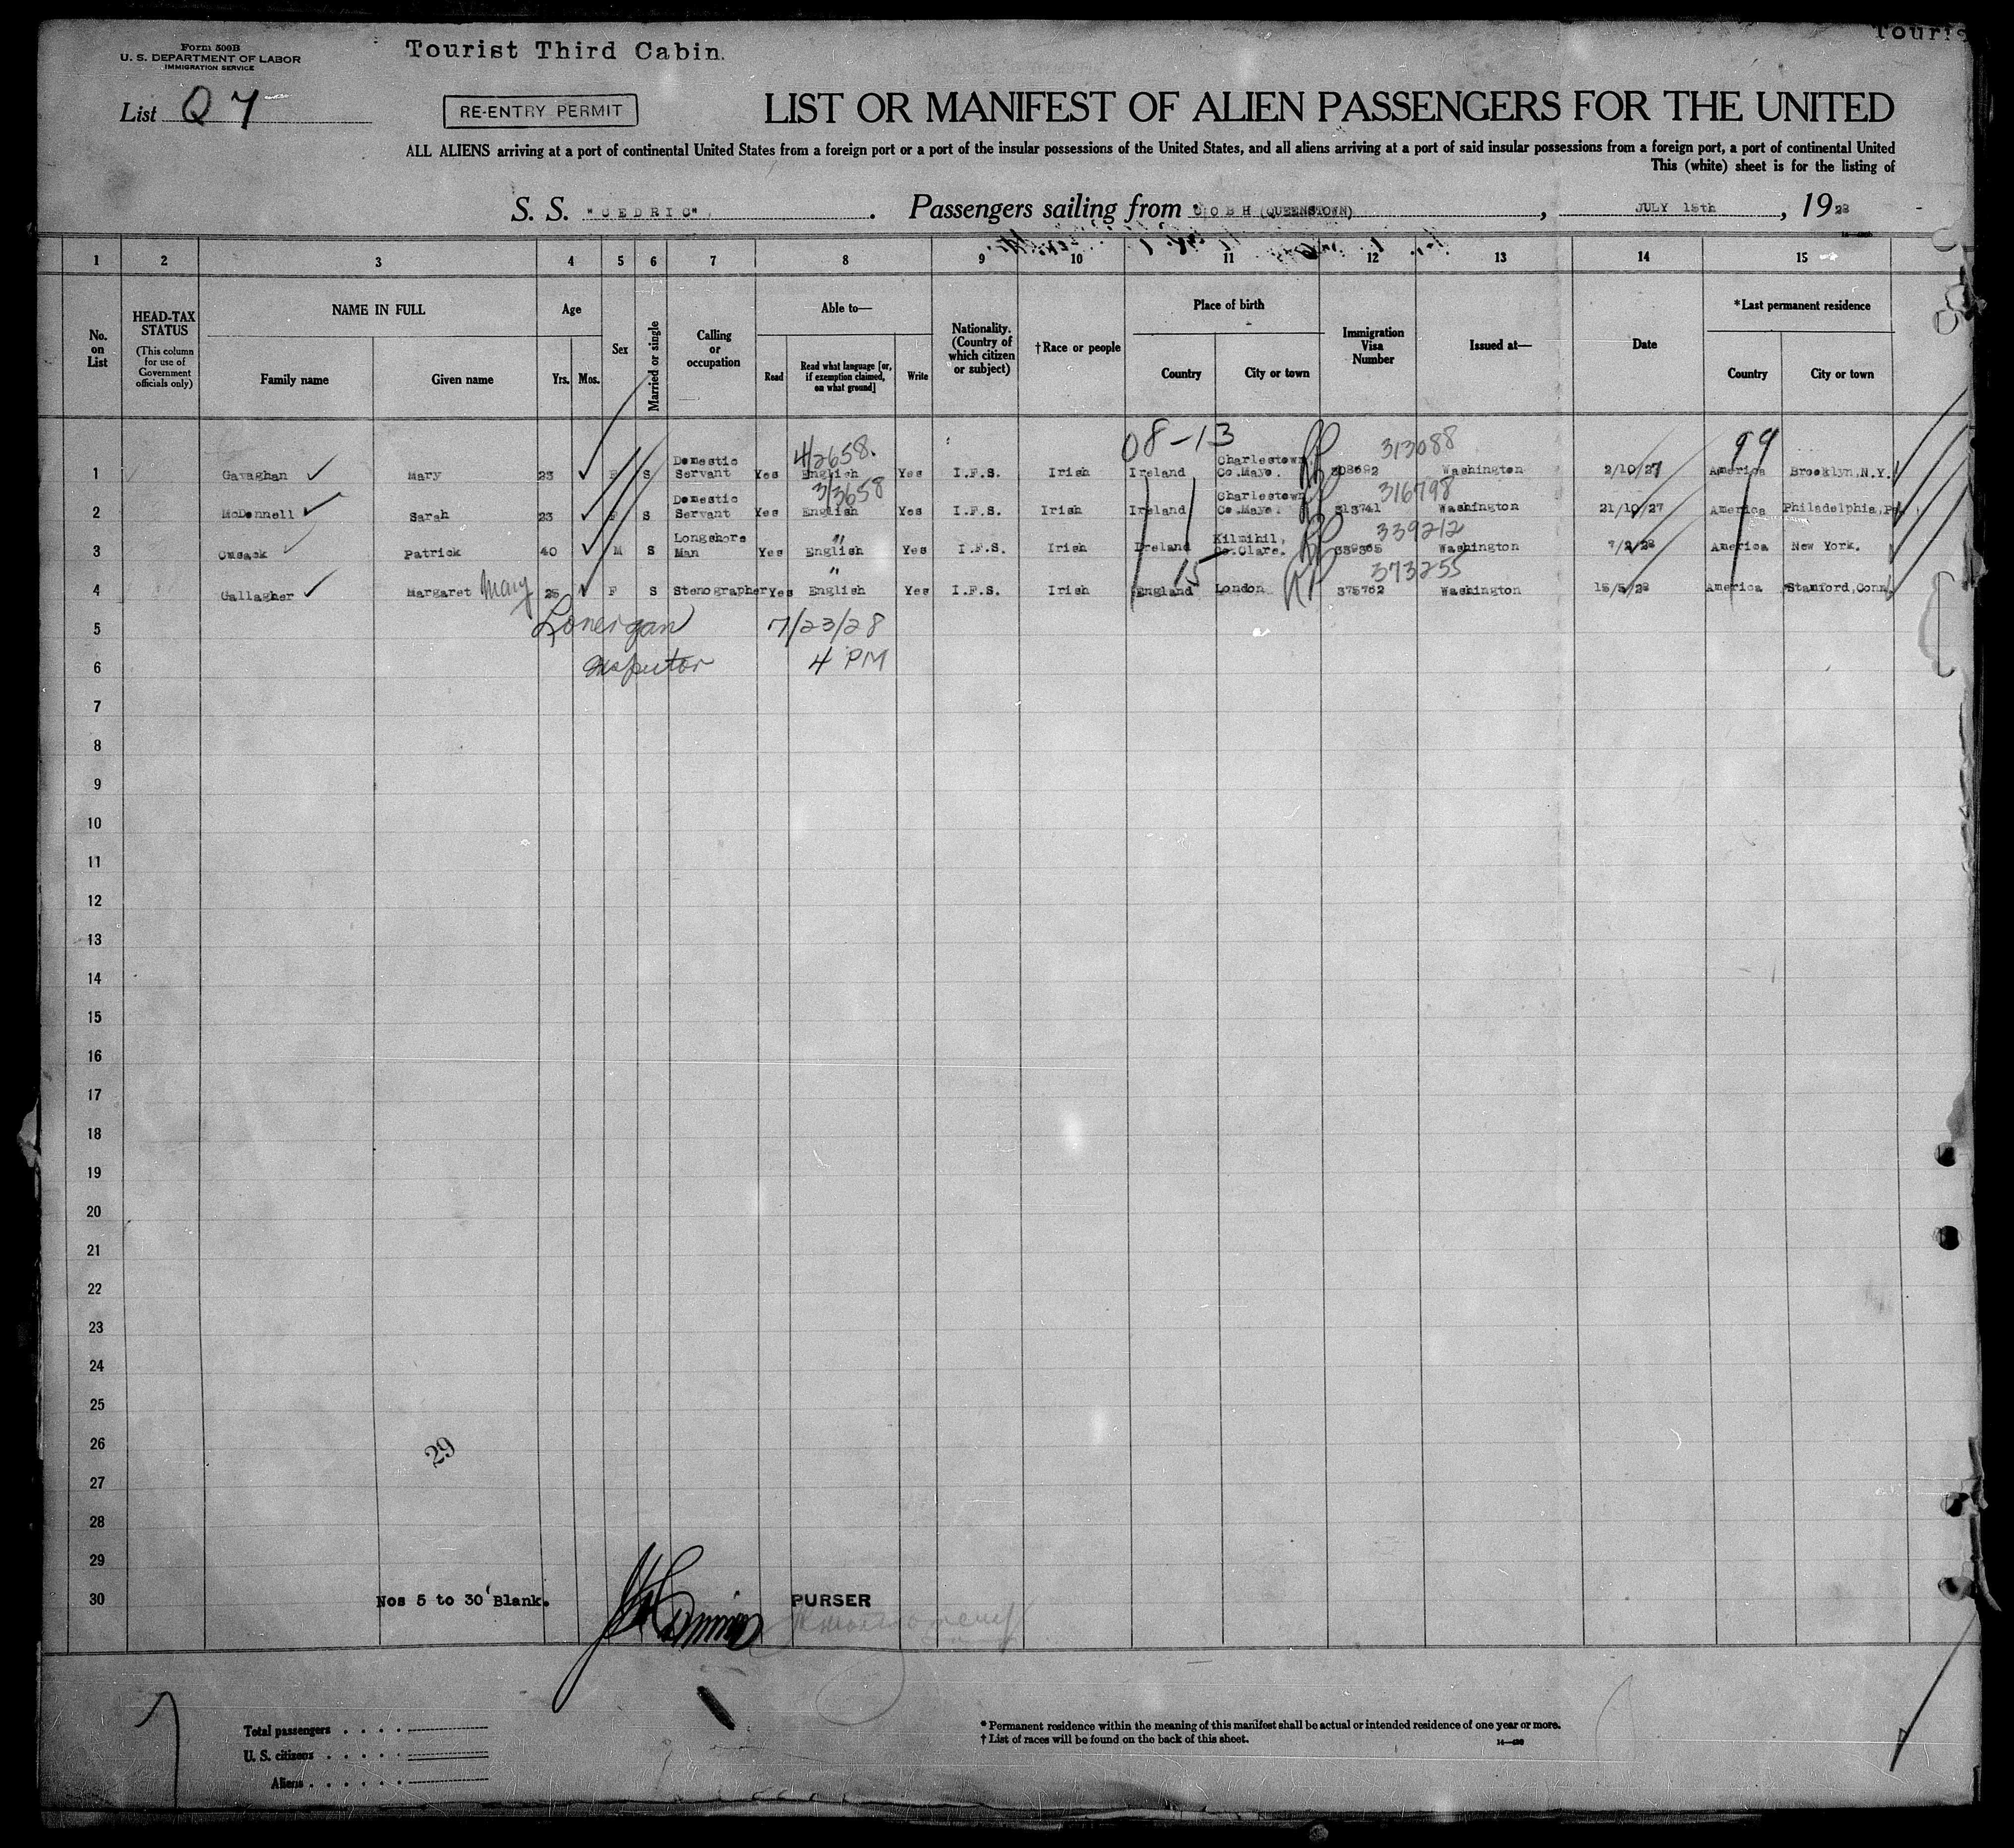 Form 500B
U. S. DEPARTMENT OF LABOR
IMMIGRATION SERVICE
Tourist Third Cabin.
Touris
List Q 7
RE-ENTRY PERMIT
LIST OR MANIFEST OF ALIEN PASSENGERS FOR THE UNITED
ALL ALIENS arriving at a port of continental United States from a foreign port or a port of the insular possessions of the United States, and all aliens arriving at a port of said insular possessions from a foreign port, a port of continental United
This (white) sheet is for the listing of
S. S. "CEDRIC". Passengers sailing from COBH (QUEENSTOWN), JULY 15th, 1928
1 2 3 4 5 6 7 8 9 10 11 12 13 14 15
No. on List
HEAD-TAX STATUS (This column for use of Government officials only)
NAME IN FULL Family name Given name
Age Yrs. Mos.
Sex
Married or single
Calling or occupation
Able to— Read Read what language [or, if exemption claimed, on what ground] Write
Nationality. (Country of which citizen or subject)
†Race or people
Place of birth Country City or town
Immigration Visa Number
Issued at—
Date
*Last permanent residence Country City or town
08-13 99
4/2658. 313088
1 Gavaghan Mary 23 F S Domestic Servant Yes English Yes I.F.S. Irish Ireland Charlestown Co.Mayo. RP 308692 Washington 2/10/27 America Brooklyn,N.Y.
3/3658 316798
2 McDonnell Sarah 23 F S Domestic Servant Yes English Yes I.F.S. Irish Ireland Charlestown Co.Mayo. RP 313741 Washington 21/10/27 America Philadelphia,Pa.
" 339212
3 Cusack Patrick 40 M S Longshore Man Yes English Yes I.F.S. Irish Ireland Kilmihil, Co.Clare. RP 339365 Washington 7/2/28 America New York.
" 15 373255
4 Gallagher Margaret Mary 25 F S Stenographer Yes English Yes I.F.S. Irish England London RP 375762 Washington 15/5/28 America Stamford,Conn.
5 Lonergan 7/23/28
6 Inspector 4 PM
7
8
9
10
11
12
13
14
15
16
17
18
19
20
21
22
23
24
25
26
29
27
28
29
30 Nos 5 to 30 Blank. PURSER
Total passengers
U. S. citizens
Aliens
* Permanent residence within the meaning of this manifest shall be actual or intended residence of one year or more.
† List of races will be found on the back of this sheet.